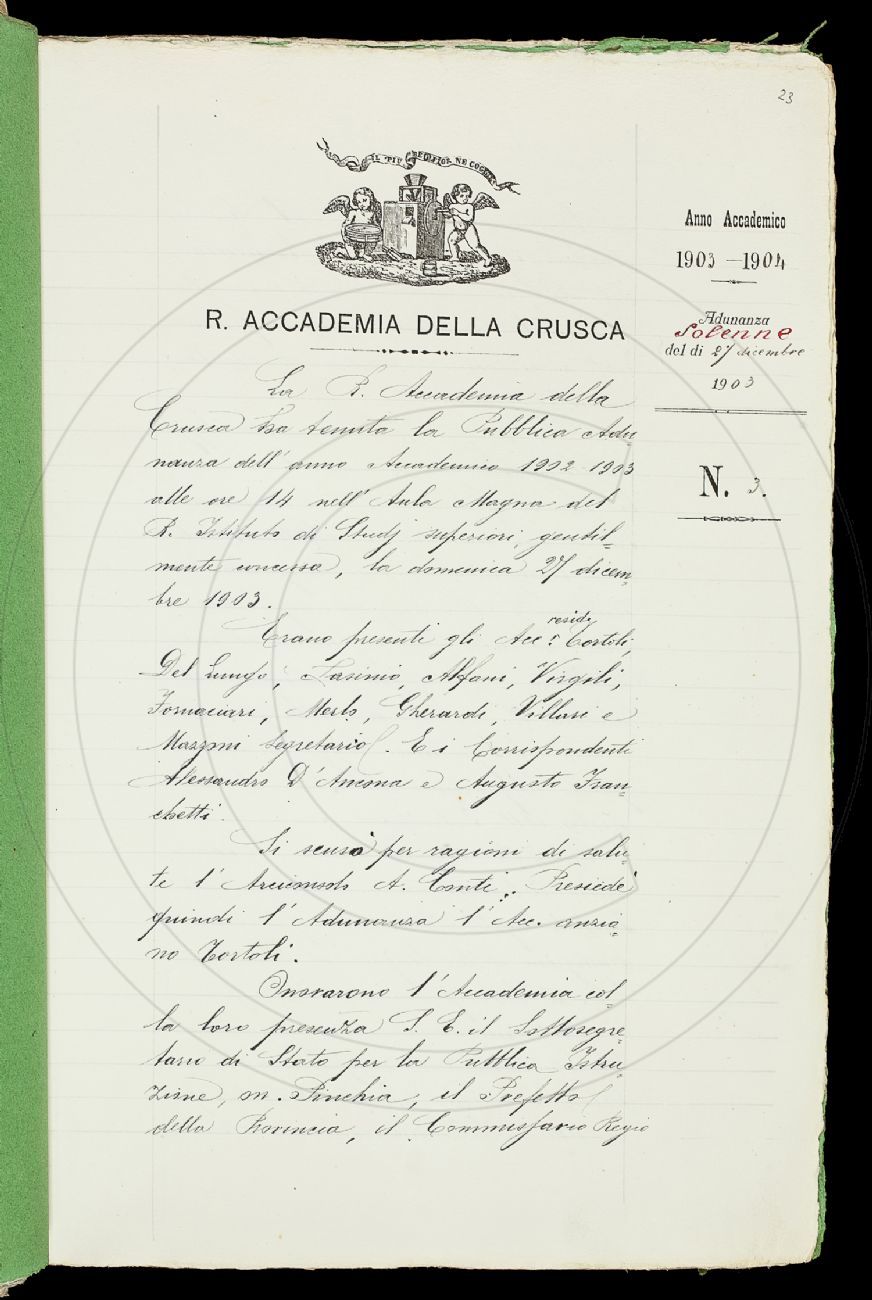 23
IL PIÙ BEL FIOR NE COGLIE
Anno Accademico
1903 - 1904
R. ACCADEMIA DELLA CRUSCA
Adunanza
Solenne
del dì 27 dicembre
1903
N. 3.
La R. Accademia della
Crusca ha tenuta la Pubblica Adu-
nanza dell' anno Accademico 1902-1903
alle ore 14 nell' Aula Magna del
R. Istituto di Studj superiori, gentil-
mente concessa, la domenica 27 dicem-
bre 1903.
Erano presenti gli Acc.i residi Tortoli,
Del Lungo, Lasinio, Alfani, Virgili,
Fornaciari, Merlo, Gherardi, Villari e
Mazzoni segretario. E i Corrispondenti
Alessandro D'Ancona e Augusto Fran-
chetti.
Si scusò per ragioni di salu-
te l' Arciconsolo A. Conti. Presiedè
quindi l' Adunanza l' Acc. anzia-
no Tortoli.
Onorarono l' Accademia col-
la loro presenza S. E. il Sottosegre-
tario di Stato per la Pubblica Istru-
zione, on. Pinchia, il Prefetto
della Provincia, il Commissario Regio